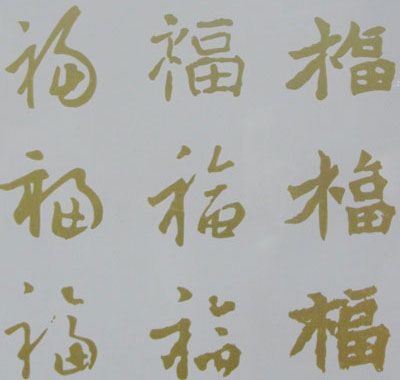 福福福
福福福
福福福